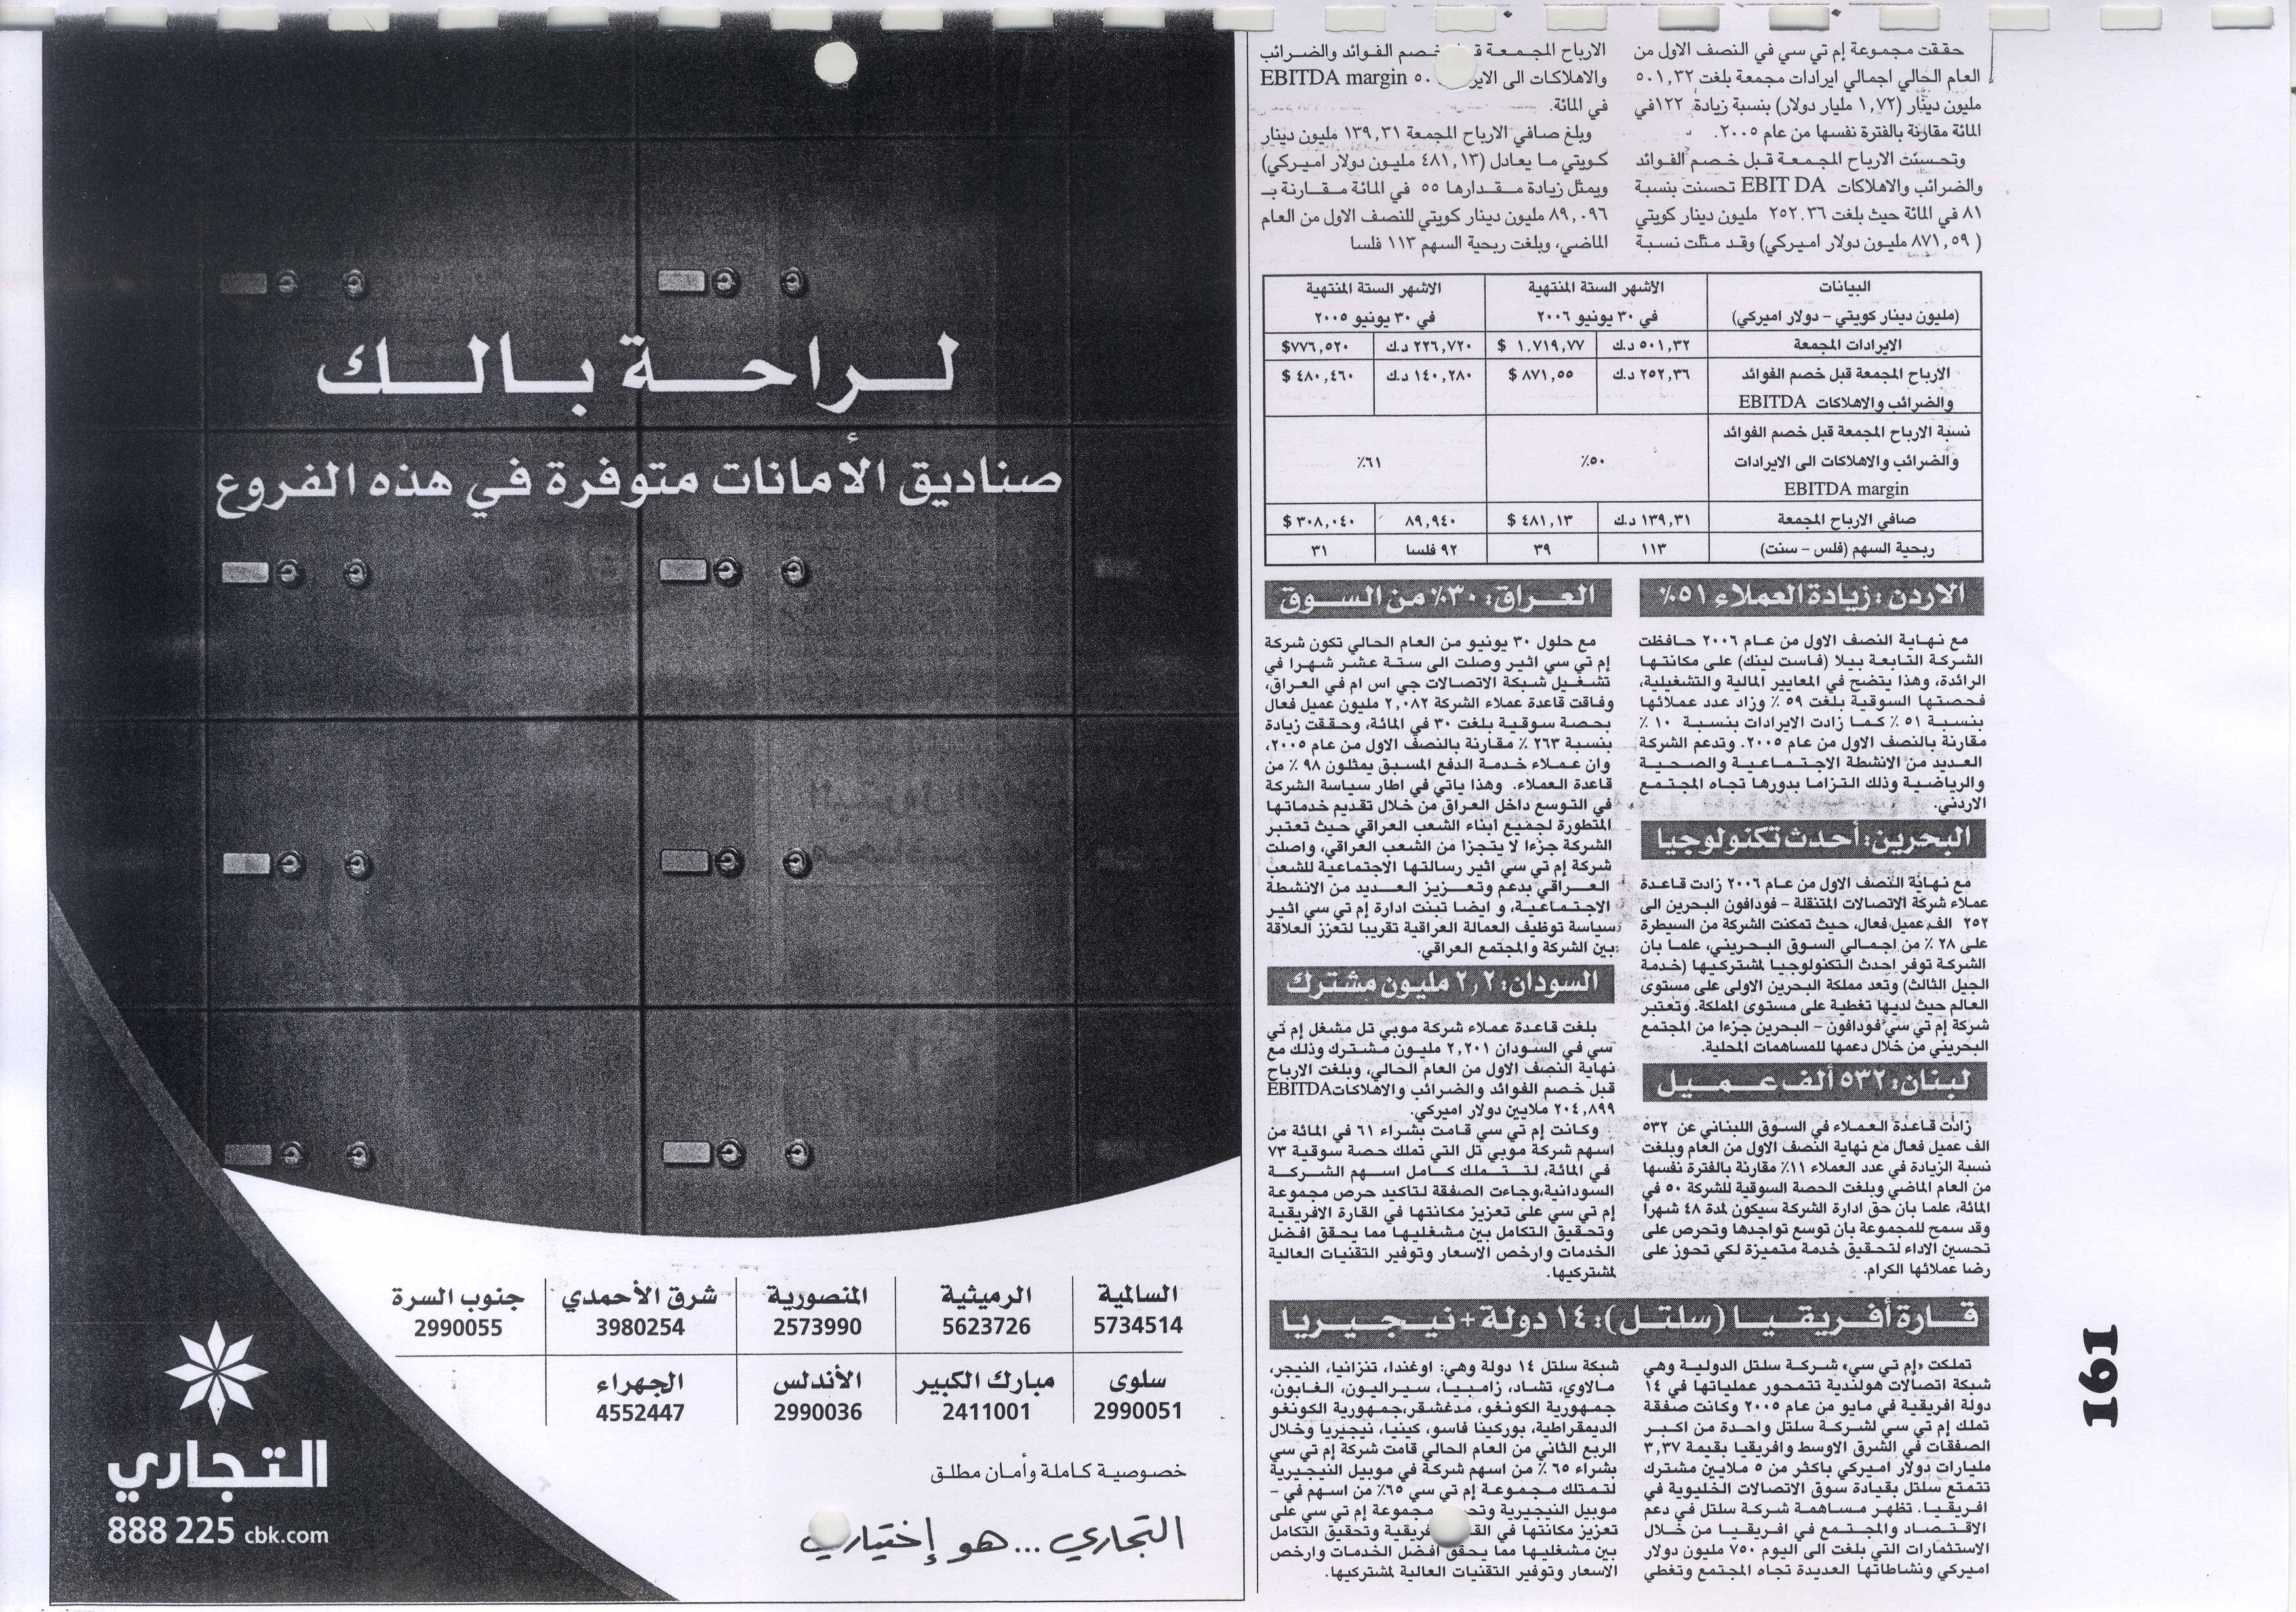 حققت مجموعة إم تي سي في النصف الاول من
العام الحالي اجمالي ايرادات مجمعة بلغت ٥٠١,٣٢
مليون دينار (١,٧٢ مليار دولار) بنسبة زيادة ١٢٢في
المائة مقارنة بالفترة نفسها من عام ٢٠٠٥.
وتحسنت الارباح المجمعة قبل خصم الفوائد
والضرائب والاهلاكات EBIT DA تحسنت بنسبة
٨١ في المائة حيث بلغت ٢٥٢.٣٦ مليون دينار كويتي
( ٨٧١,٥٩ مليون دولار اميركي) وقد مثلت نسبة
الارباح المجمعة خصم الفوائد والضرائب
والاهلاكات الى EBITDA margin ٥٠
في المائة.
وبلغ صافي الارباح المجمعة ١٣٩,٣١ مليون دينار
كويتي ما يعادل (٤٨١,١٣ مليون دولار اميركي)
ويمثل زيادة مقدارها ٥٥ في المائة مقارنة بـ
٨٩,٠٩٦ مليون دينار كويتي للنصف الاول من العام
الماضي، وبلغت ربحية السهم ١١٣ فلسا
البيانات الأشهر الستة المنتهية الاشهر الستة المنتهية
(مليون دينار كويتي – دولار اميركي) في ٣٠ يونيو ٢٠٠٦ في ٣٠ يونيو ٢٠٠٥
الايرادات المجمعة ٥٠١,٣٢ د.ك ١.٧١٩,٧٧ $ ٢٢٦,٧٢٠ د.ك ٧٧٦,٥٢٠$
الارباح المجمعة قبل خصم الفوائد ٢٥٢,٣٦ د.ك ٨٧١,٥٥ $ ١٤٠,٢٨٠ د.ك ٤٨٠,٤٦٠ $
والضرائب والاهلاكات EBITDA
نسبة الارباح المجمعة قبل خصم الفوائد
والضرائب والاهلاكات الى الايرادات ٥٠٪ ٦١٪
EBITDA margin
صافي الارباح المجمعة ١٣٩,٣١ د.ك ٤٨١,١٣ $ ٨٩,٩٤٠ ٣٠٨,٠٤٠ $
ربحية السهم (فلس – سنت) ١١٣ ٣٩ ٩٢ فلسا ٣١
الاردن : زيادة العملاء ٥١٪
مع نهاية النصف الاول من عام ٢٠٠٦ حافظت
الشركة التابعة بيلا (فاست لينك) على مكانتها
الرائدة، وهذا يتضح في المعايير المالية والتشغيلية،
فحصتها السوقية بلغت ٥٩ ٪ وزاد عدد عملائها
بنسبة ٥١ ٪ كما زادت الايرادات بنسبة ١٠ ٪
مقارنة بالنصف الاول من عام ٢٠٠٥. وتدعم الشركة
العديد من الانشطة الاجتماعية والصحية
والرياضية وذلك التزاما بدورها تجاه المجتمع
الاردني.
البحرين: أحدث تكنولوجيا
مع نهاية النصف الاول من عام ٢٠٠٦ زادت قاعدة
عملاء شركة الاتصالات المتنقلة – فودافون البحرين الى
٢٥٢ الف عميل فعال، حيث تمكنت الشركة من السيطرة
على ٢٨ ٪ من إجمالي السوق البحريني، علما بان
الشركة توفر احدث التكنولوجيا لمشتركيها (خدمة
الجيل الثالث) وتعد مملكة البحرين الاولى على مستوى
العالم حيث لديها تغطية على مستوى المملكة. وتعتبر
شركة إم تي سي فودافون – البحرين جزءا من المجتمع
البحريني من خلال دعمها للمساهمات المحلية.
لبنان: ٥٣٢ ألف عـمـيل
زادت قاعدة العملاء في السوق اللبناني عن ٥٣٢
الف عميل فعال مع نهاية النصف الاول من العام وبلغت
نسبة الزيادة في عدد العملاء ١١٪ مقارنة بالفترة نفسها
من العام الماضي وبلغت الحصة السوقية للشركة ٥٠ في
المائة، علما بان حق ادارة الشركة سيكون لمدة ٤٨ شهرا
وقد سمح للمجموعة بان توسع تواجدها وتحرص على
تحسين الاداء لتحقيق خدمة متميزة لكي تحوز على
رضا عملائها الكرام.
العـراق: ٣٠٪ من السـوق
مع حلول ٣٠ يونيو من العام الحالي تكون شركة
إم تي سي اثير وصلت الى ستة عشر شهرا في
تشغيل شبكة الاتصالات جي اس ام في العراق،
وفاقت قاعدة عملاء الشركة ٢,٠٨٢ مليون عميل فعال
بحصة سوقية بلغت ٣٠ في المائة، وحققت زيادة
بنسبة ٢٦٣ ٪ مقارنة بالنصف الاول من عام ٢٠٠٥،
وان عملاء خدمة الدفع المسبق يمثلون ٩٨ ٪ من
قاعدة العملاء. وهذا ياتي في اطار سياسة الشركة
في التوسع داخل العراق من خلال تقديم خدماتها
المتطورة لجميع ابناء الشعب العراقي حيث تعتبر
الشركة جزءا لا يتجزا من الشعب العراقي، واصلت
شركة إم تي سي اثير رسالتها الاجتماعية للشعب
العراقي بدعم وتعزيز العديد من الانشطة
الاجتماعية، و ايضا تبنت ادارة إم تي سي اثير
سياسة توظيف العمالة العراقية تقريبا لتعزز العلاقة
بين الشركة والمجتمع العراقي.
السودان: ٢,٢ مليون مشترك
بلغت قاعدة عملاء شركة موبي تل مشغل إم تي
سي في السودان ٢,٢٠١ مليون مشترك وذلك مع
نهاية النصف الاول من العام الحالي، وبلغت الارباح
قبل خصم الفوائد والضرائب والاهلاكاتEBITDA
٢٠٤,٨٩٩ ملايين دولار اميركي.
وكانت إم تي سي قامت بشراء ٦١ في المائة من
اسهم شركة موبي تل التي تملك حصة سوقية ٧٣
في المائة، لتتملك كامل اسهم الشركة
السودانية،وجاءت الصفقة لتاكيد حرص مجموعة
إم تي سي على تعزيز مكانتها في القارة الافريقية
وتحقيق التكامل بين مشغليها مما يحقق افضل
الخدمات وارخص الاسعار وتوفير التقنيات العالية
لمشتركيها.
قـارة أفـريـقـيـا (سلتـل): ١٤ دولة + نيـجـيـريا
تملكت «إم تي سي» شركة سلتل الدولية وهي
شبكة اتصالات هولندية تتمحور عملياتها في ١٤
دولة افريقية في مايو من عام ٢٠٠٥ وكانت صفقة
تملك إم تي سي لشركة سلتل واحدة من اكبر
الصفقات في الشرق الاوسط وافريقيا بقيمة ٣,٣٧
مليارات دولار اميركي باكثر من ٥ ملايين مشترك
تتمتع سلتل بقيادة سوق الاتصالات الخليوية في
افريقيا. تظهر مساهمة شركة سلتل في دعم
الاقتصاد والمجتمع في افريقيا من خلال
الاستثمارات التي بلغت الى اليوم ٧٥٠ مليون دولار
اميركي ونشاطاتها العديدة تجاه المجتمع وتغطي
شبكة سلتل ١٤ دولة وهي: اوغندا، تنزانيا، النيجر،
مالاوي، تشاد، زامبيا، سيراليون، الغابون،
جمهورية الكونغو، مدغشقر،جمهورية الكونغو
الديمقراطية، بوركينا فاسو، كينيا، نيجيريا وخلال
الربع الثاني من العام الحالي قامت شركة إم تي سي
بشراء ٦٥ ٪ من اسهم شركة في موبيل النيجيرية
لتمتلك مجموعة إم تي سي ٦٥٪ من اسهم في –
موبيل النيجيرية مجموعة إم تي سي على
تعزيز مكانتها في وتحقيق التكامل
بين مشغليها مما يحقق افضل الخدمات وارخص
الاسعار وتوفير التقنيات العالية لمشتركيها.
لـراحـة بـالـك
صناديق الأمانات متوفرة في هذه الفروع
السالمية الرميثية المنصورية شرق الأحمدي جنوب السرة
5734514 5623726 2573990 3980254 2990055
سلوى مبارك الكبير الأندلس الجهراء
2990051 2411001 2990036 4552447
خصوصية كاملة وأمان مطلق
التجاري ...هو إختياري
التجاري
888 225 cbk.com
161